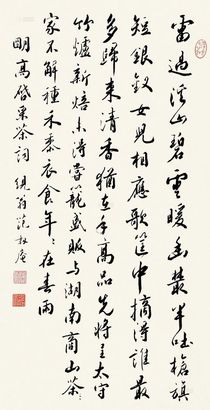 雷過溪山碧雲暖幽叢半吐槍旗
短銀釵女兒相應歌筐中摘得誰最
多歸來清香猶在手高品先將呈太守
竹爐新焙未得嘗籠盛販與湖南商山
家不解種禾黍衣食年〻在春雨
明高啓采茶詞